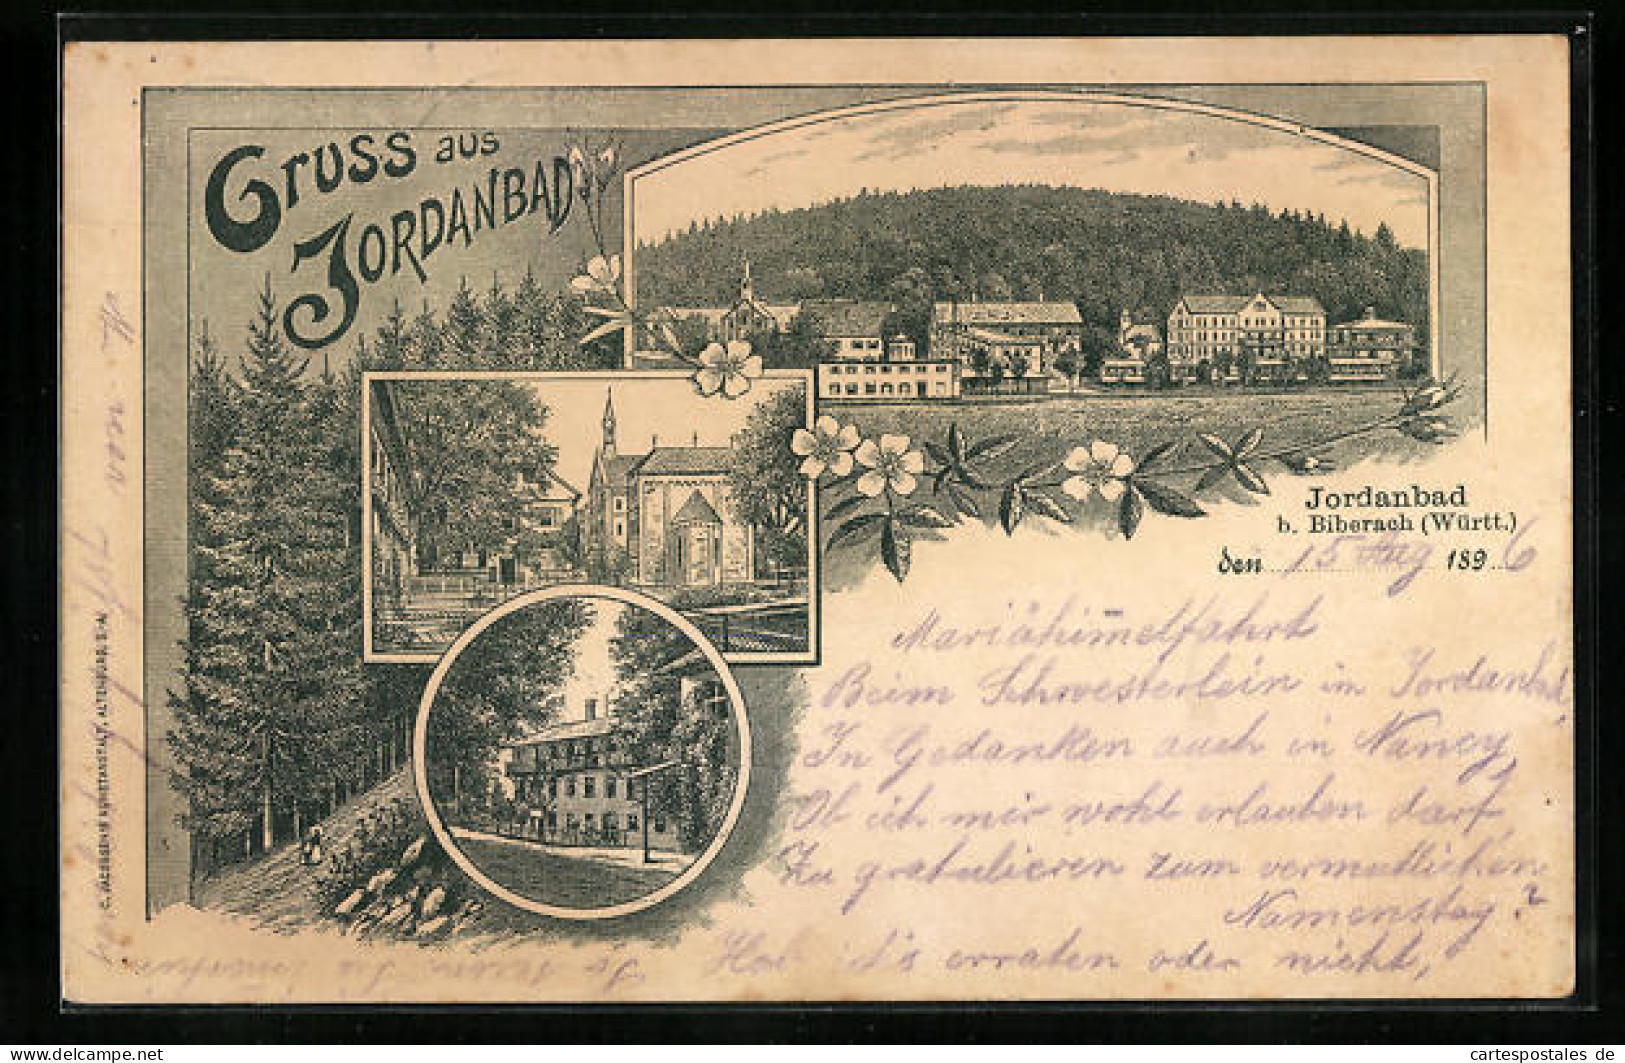 Gruss aus
Jordanbad
Jordanbad
b. Biberach (Württ.)
den 15 Aug 1896
Mariähim̅elfahrt
Beim Schwesterlein im Jordanbad,
In Gedanken auch in Nancy,
Ob ich mir wohl erlauben darf,
Zu gratulieren zum vermutlichen
Namenstag?
Hab ich's erraten oder nicht,
ALTENBURG, S.-A.
delcampe.net
cartespostales_de